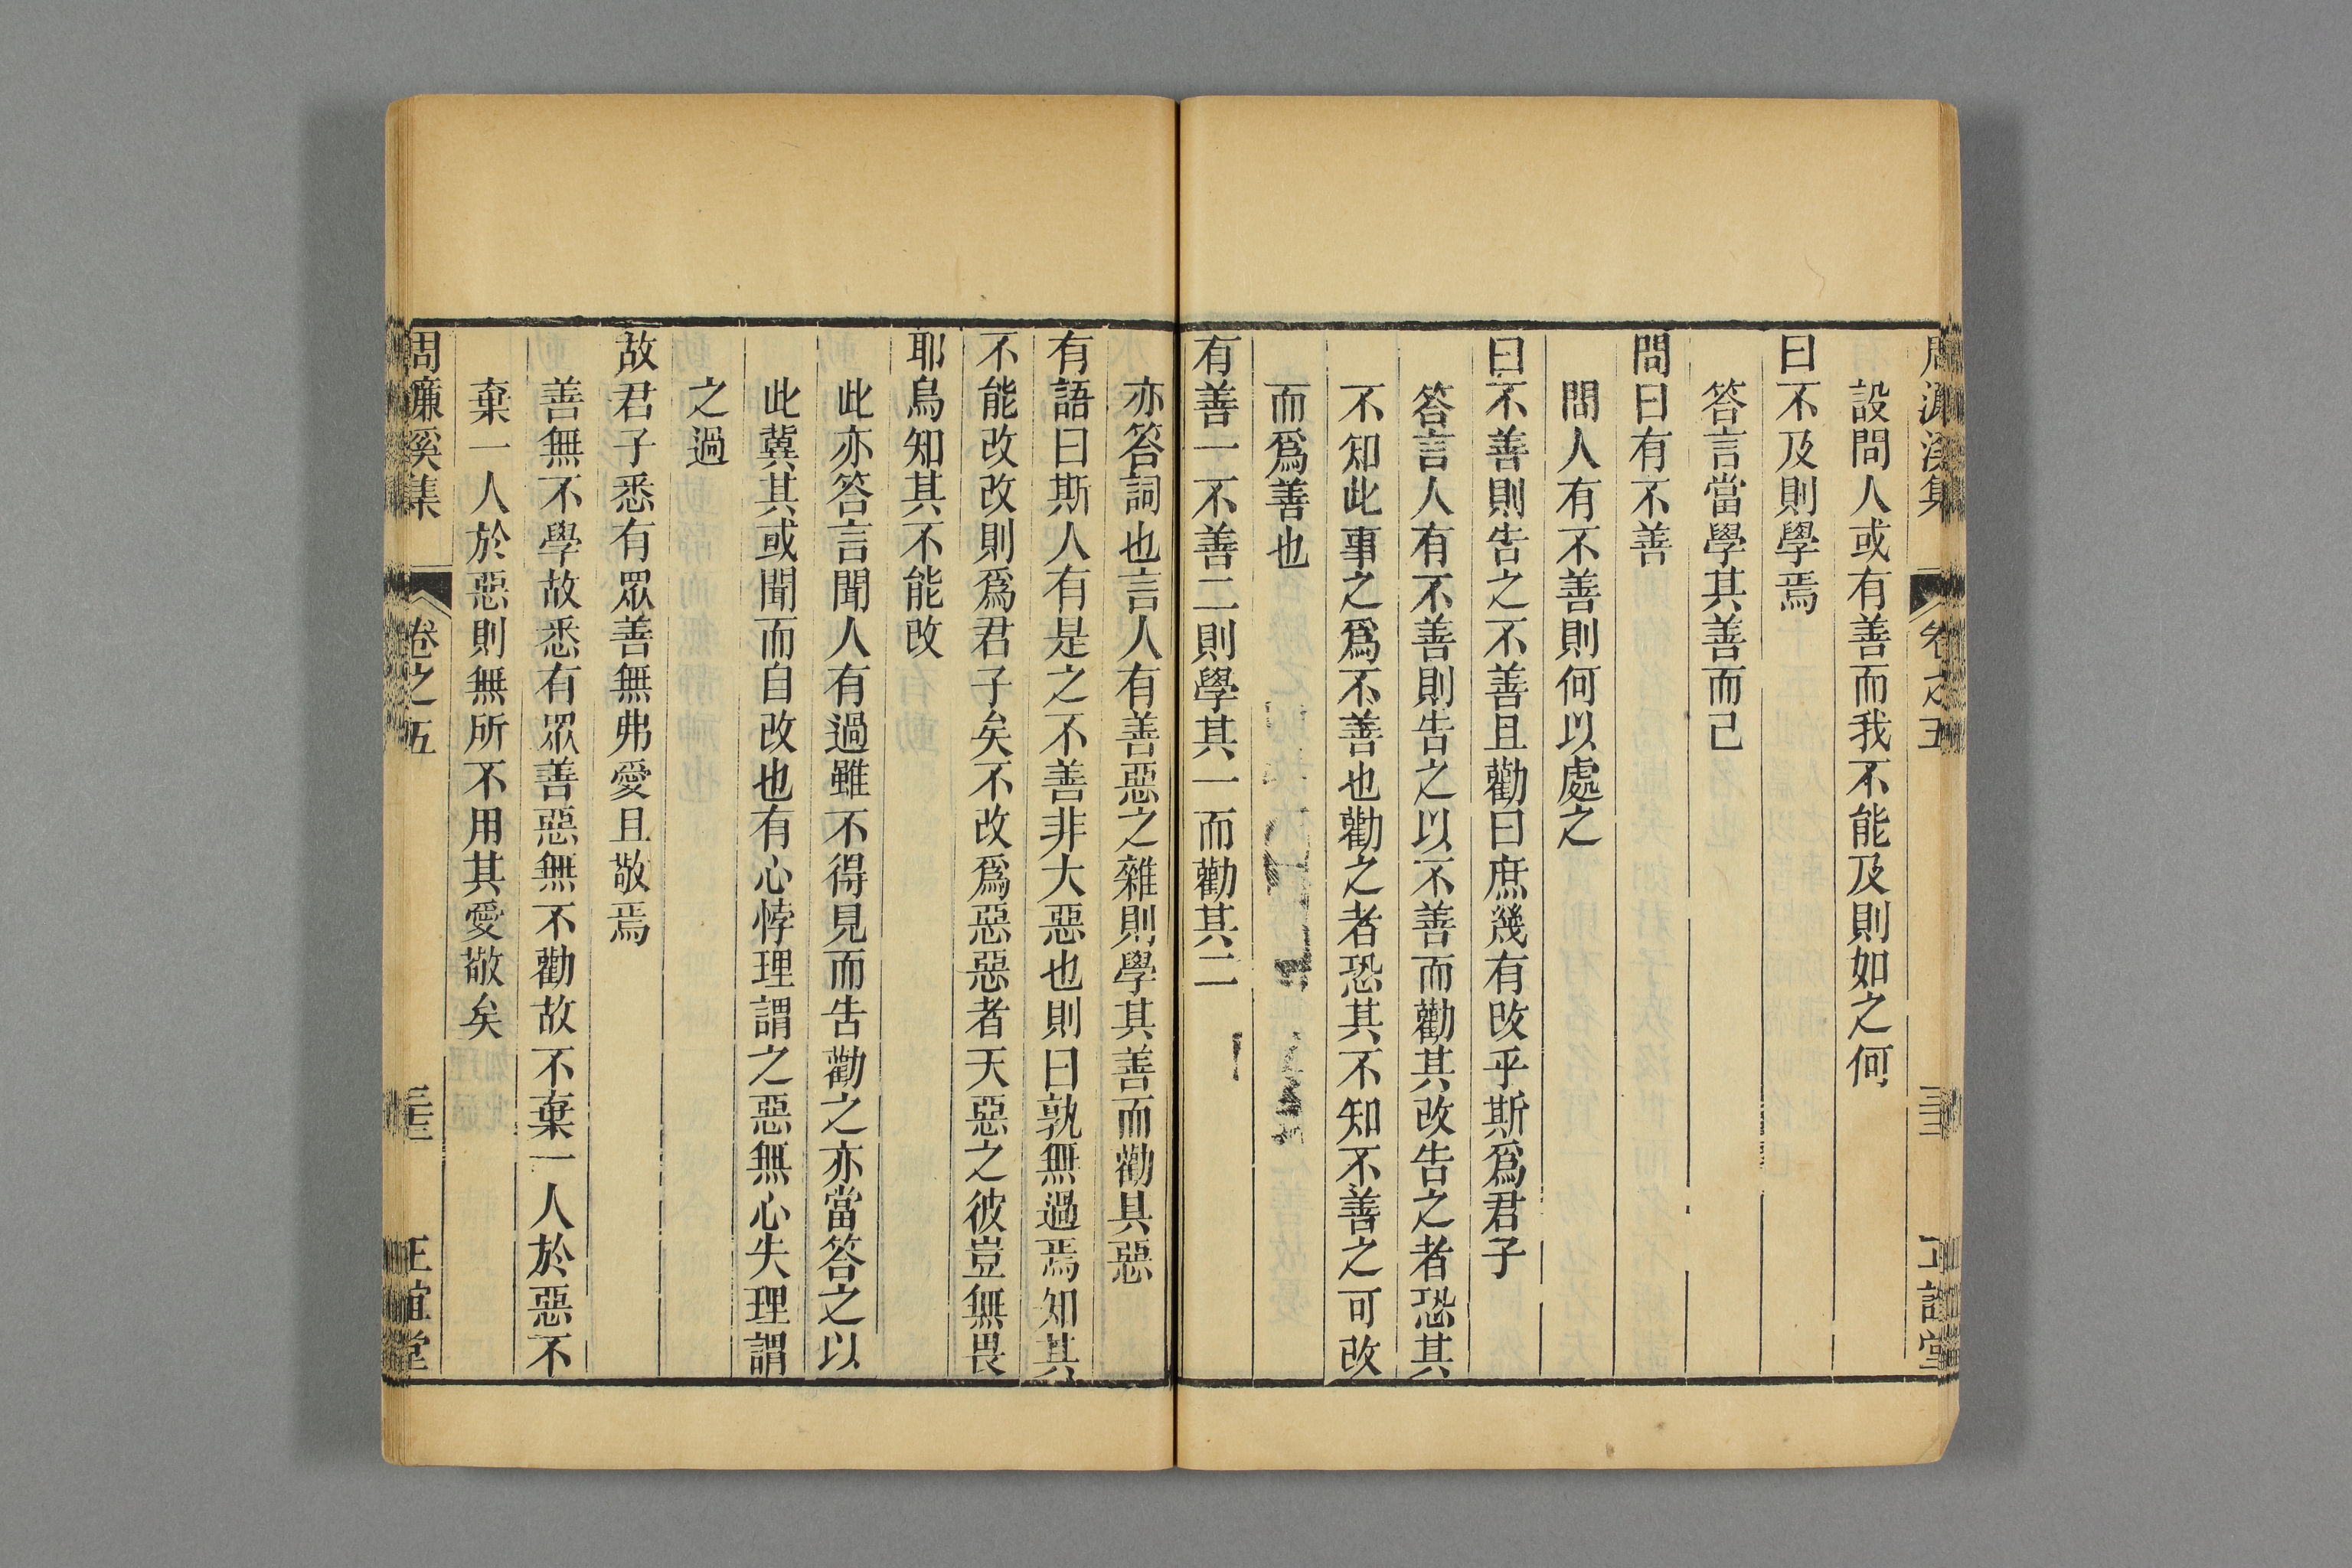 周濂溪集 卷之五 正誼堂
設問人或有善而我不能及則如之何
曰不及則學焉
答言當學其善而已
問曰有不善
問人有不善則何以處之
曰不善則告之不善且勸曰庶幾有改乎斯爲君子
答言人有不善則告之以不善而勸其改告之者恐其
不知此事之爲不善也勸之者恐其不知不善之可改
而爲善也
有善一不善二則學其一而勸其二
亦答詞也言人有善惡之雜則學其善而勸其惡
有語曰斯人有是之不善非大惡也則曰孰無過焉知其
不能改改則爲君子矣不改爲惡惡者天惡之彼豈無畏
耶烏知其不能改
此亦答言聞人有過雖不得見而告勸之亦當答之以
此冀其或聞而自改也有心悖理謂之惡無心失理謂
之過
故君子悉有眾善無弗愛且敬焉
善無不學故悉有眾善惡無不勸故不棄一人於惡不
棄一人於惡則無所不用其愛敬矣
周濂溪集 卷之五 正誼堂